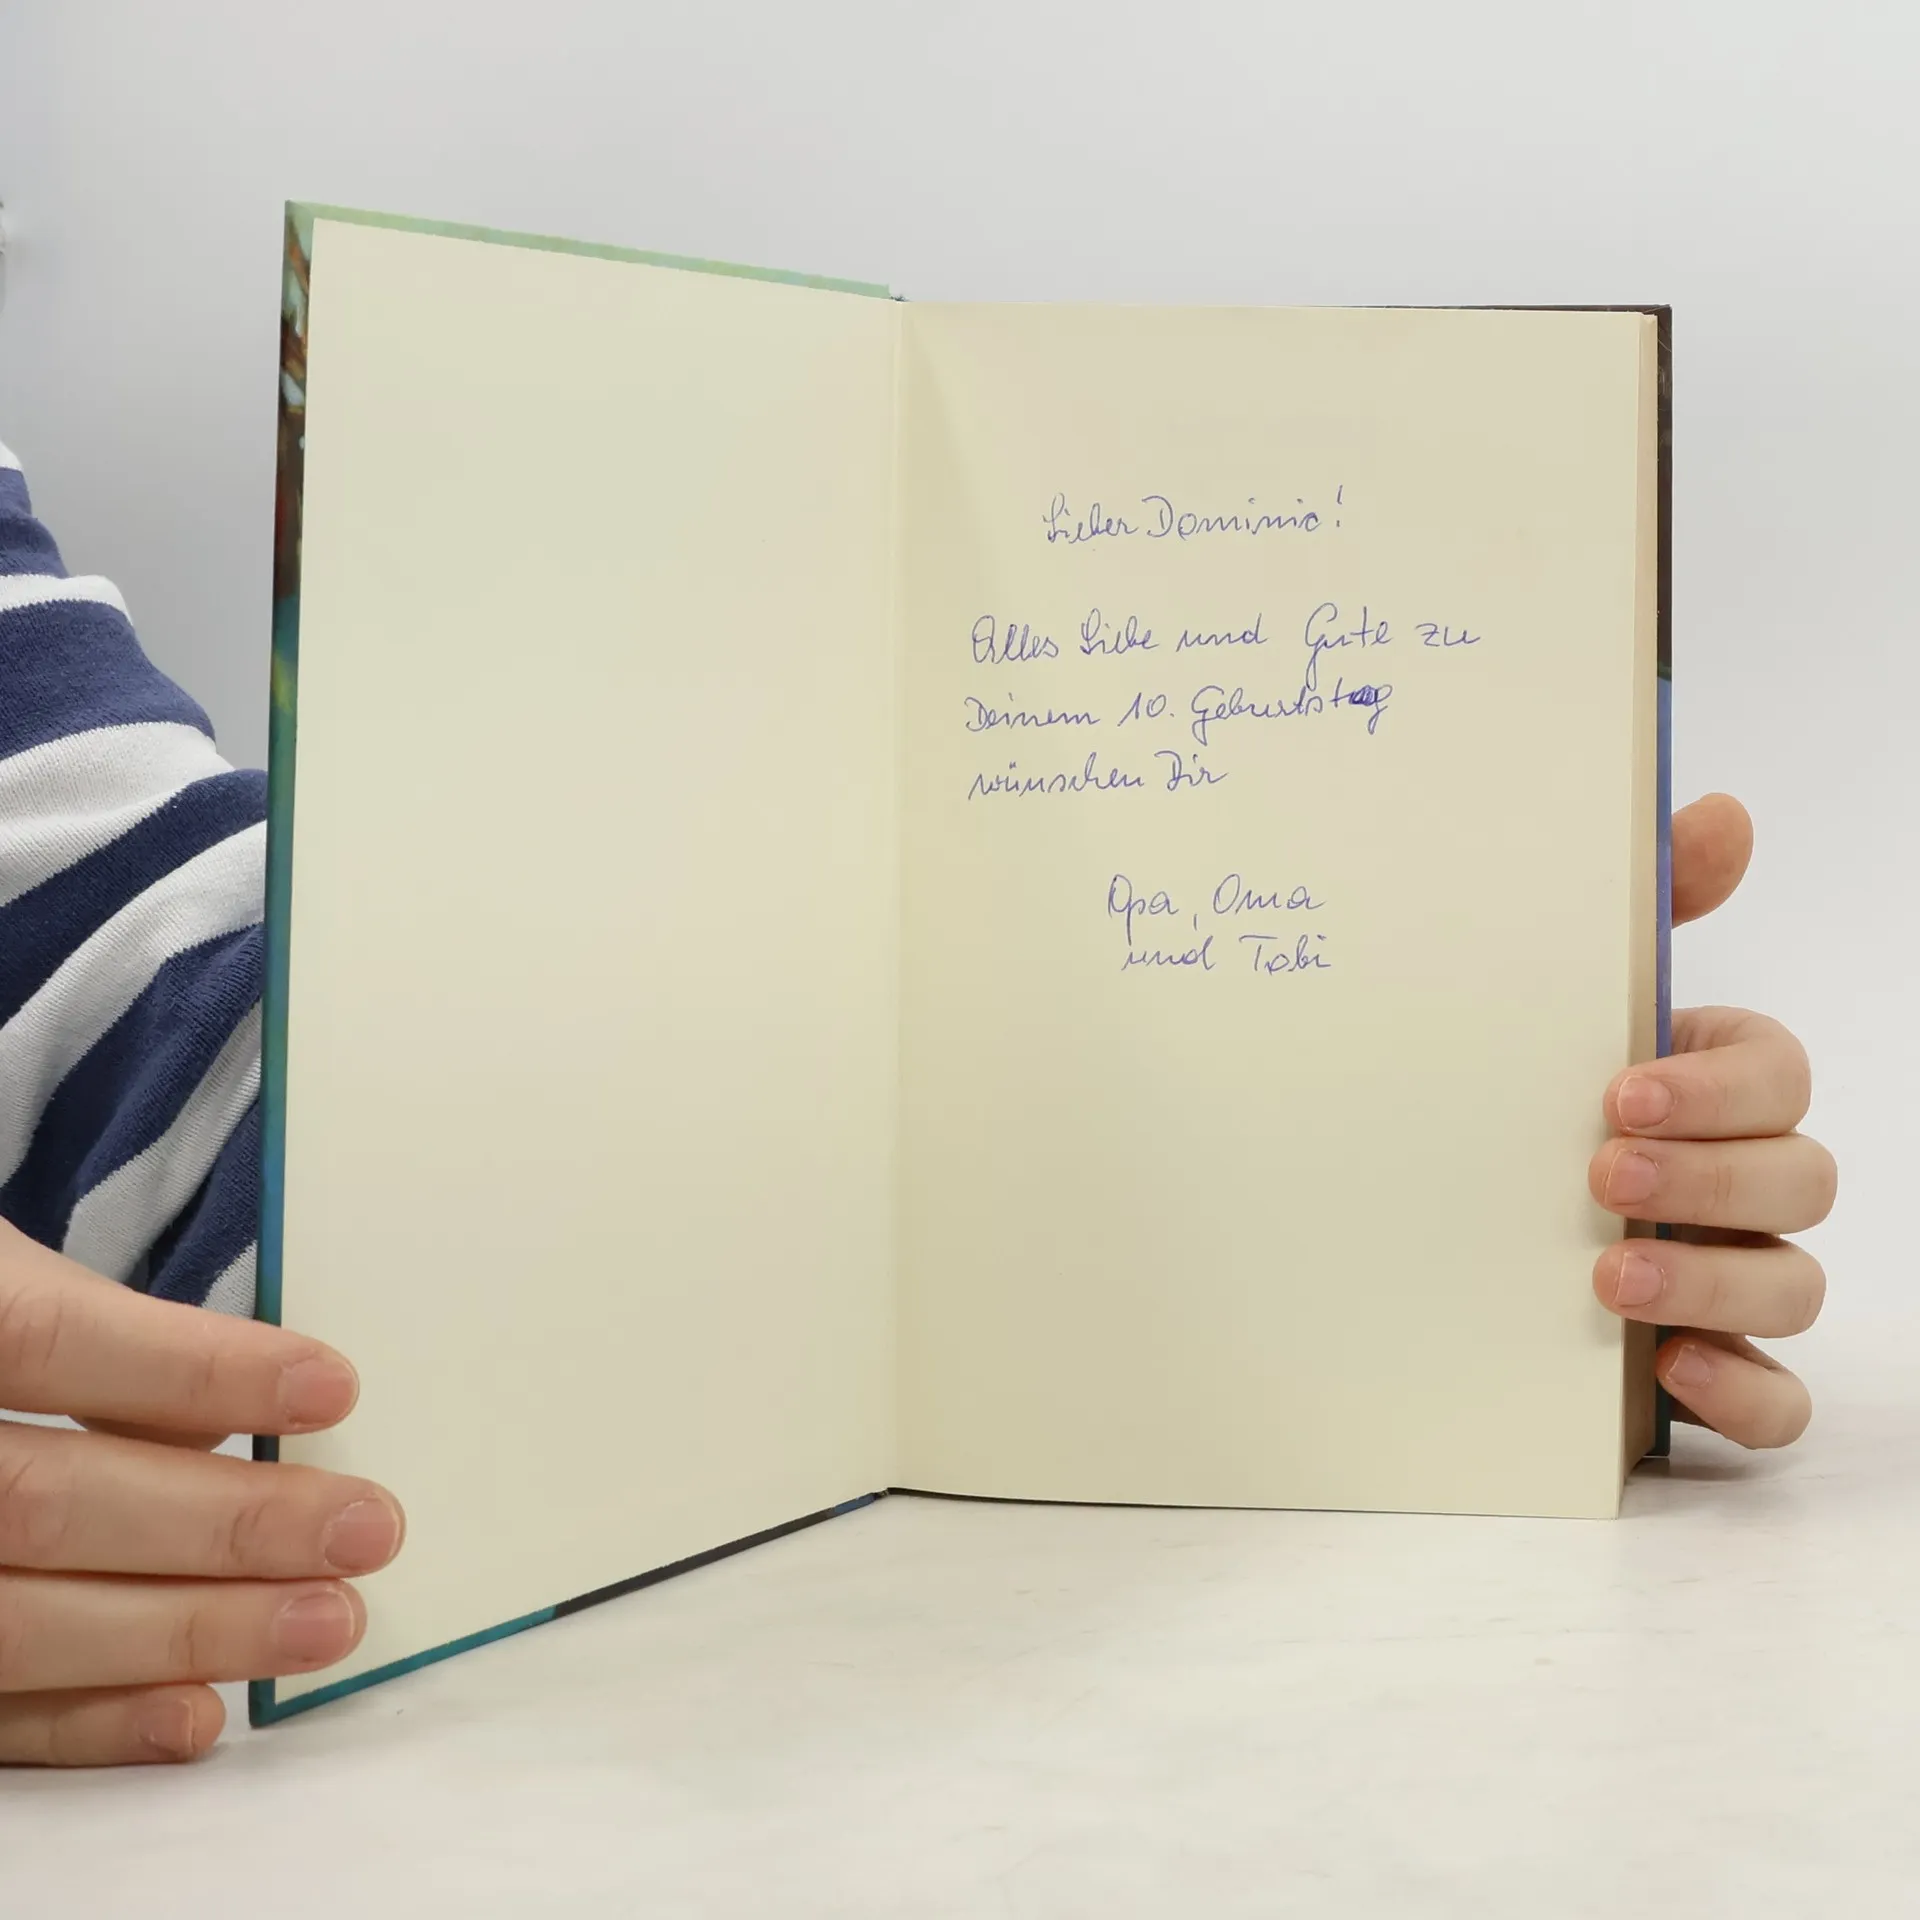 Lieber Dominic!
Alles Liebe und Gute zu
Deinem 10. Geburtstag
wünschen Dir
Opa, Oma
und Tobi